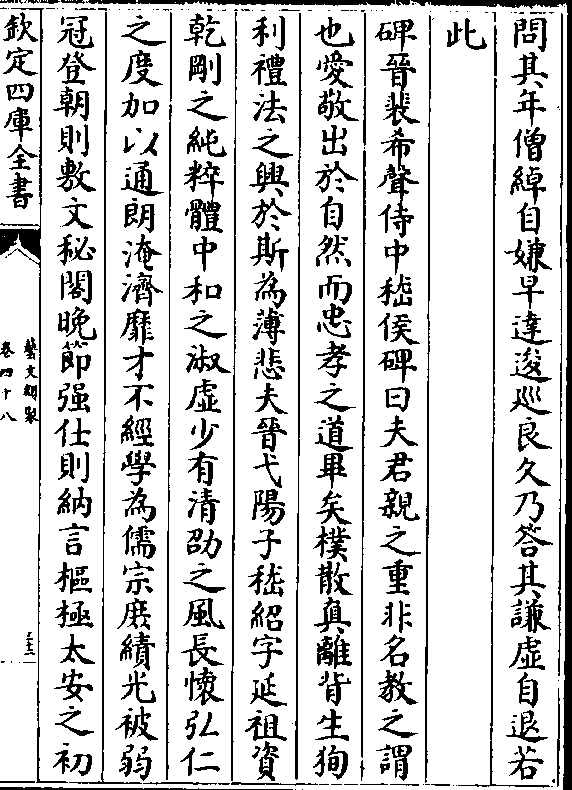 問其年僧綽自嫌早達逡巡良久乃答其謙虛自退若
此
碑晉裴希聲侍中嵇侯碑曰夫君親之重非名教之謂
也愛敬出於自然而忠孝之道畢矣樸散真離背生狥
利禮法之興於斯為薄悲夫晉弋陽子嵇紹字延祖資
乾剛之純粹體中和之淑虛少有清劭之風長懷弘仁
之度加以通朗淹濟靡才不經學為儒宗庶績光被弱
冠登朝則敷文秘閣晚節强仕則納言樞極太安之初
欽定四庫全書
藝文類聚
卷四十八
三三